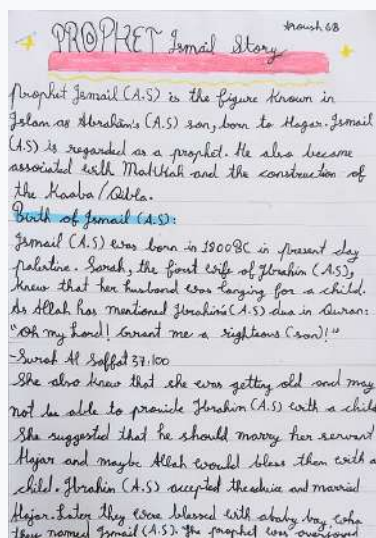 Aroush 6B
PROPHET Ismail Story
Prophet Ismail (A.S) is the figure known in
Islam as Abraham's (A.S) son, born to Hagar. Ismail
(A.S) is regarded as a prophet. He also became
associated with Makkah and the construction of
the Kaaba/Qibla.
Birth of Ismail (A.S):
Ismail (A.S) was born in 1800BC in present day
palestine. Sarah, the first wife of Ibrahim (A.S),
knew that her husband was longing for a child.
As Allah has mentioned Ibrahim's (A.S) dua in Quran:
"Oh my Lord! Grant me a righteous (son)!"
-Surah Al Saffat 37:100
She also knew that she was getting old and may
not be able to provide Ibrahim (A.S) with a child.
She suggested that he should marry her servant
Hajar and maybe Allah would bless them with a
child. Ibrahim (A.S) accepted the advice and married
Hajar. Later they were blessed with a baby boy, who
they named Ismail (A.S). The prophet was overjoyed